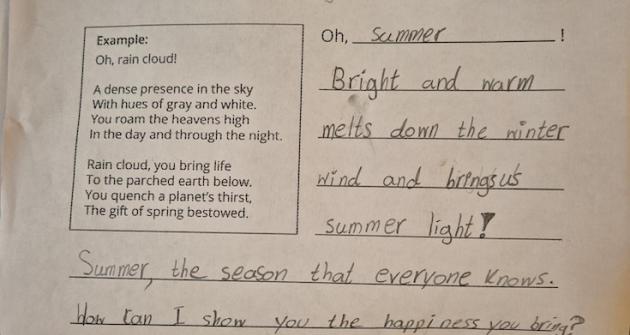 Example:
Oh, rain cloud!
A dense presence in the sky
With hues of gray and white.
You roam the heavens high
In the day and through the night.
Rain cloud, you bring life
To the parched earth below.
You quench a planet's thirst,
The gift of spring bestowed.
Oh, Summer !
Bright and warm
melts down the winter
wind and brings us
summer light!
Summer, the season that everyone knows.
How can I show you the happiness you bring?